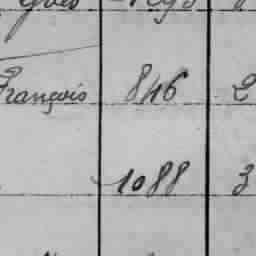 François 846 2
1088 3